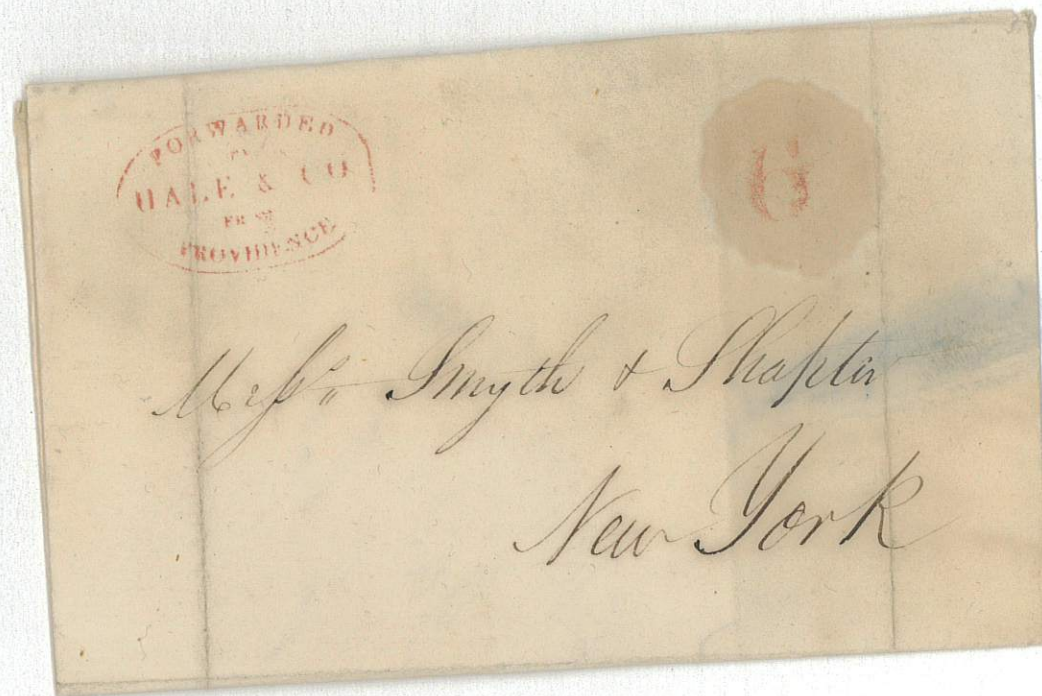 FORWARDED
BY
HALE & CO
FROM
PROVIDENCE
6
Messrs Smyth & Shapter
New York